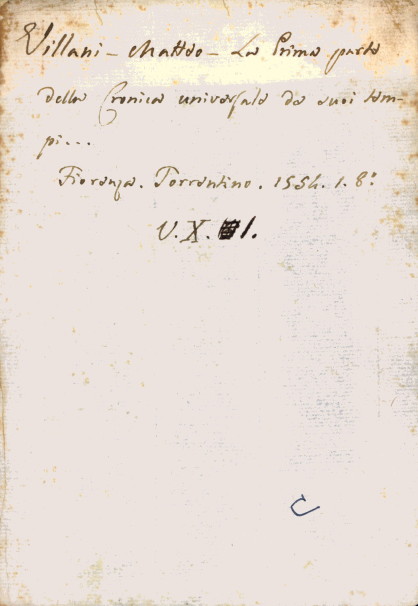 Villani - Matteo - La Prima parte
della Cronica universale de suoi tem-
pi...
Fiorenza. Torrentino. 1554. 1. 8.º
V. X. 1.
C